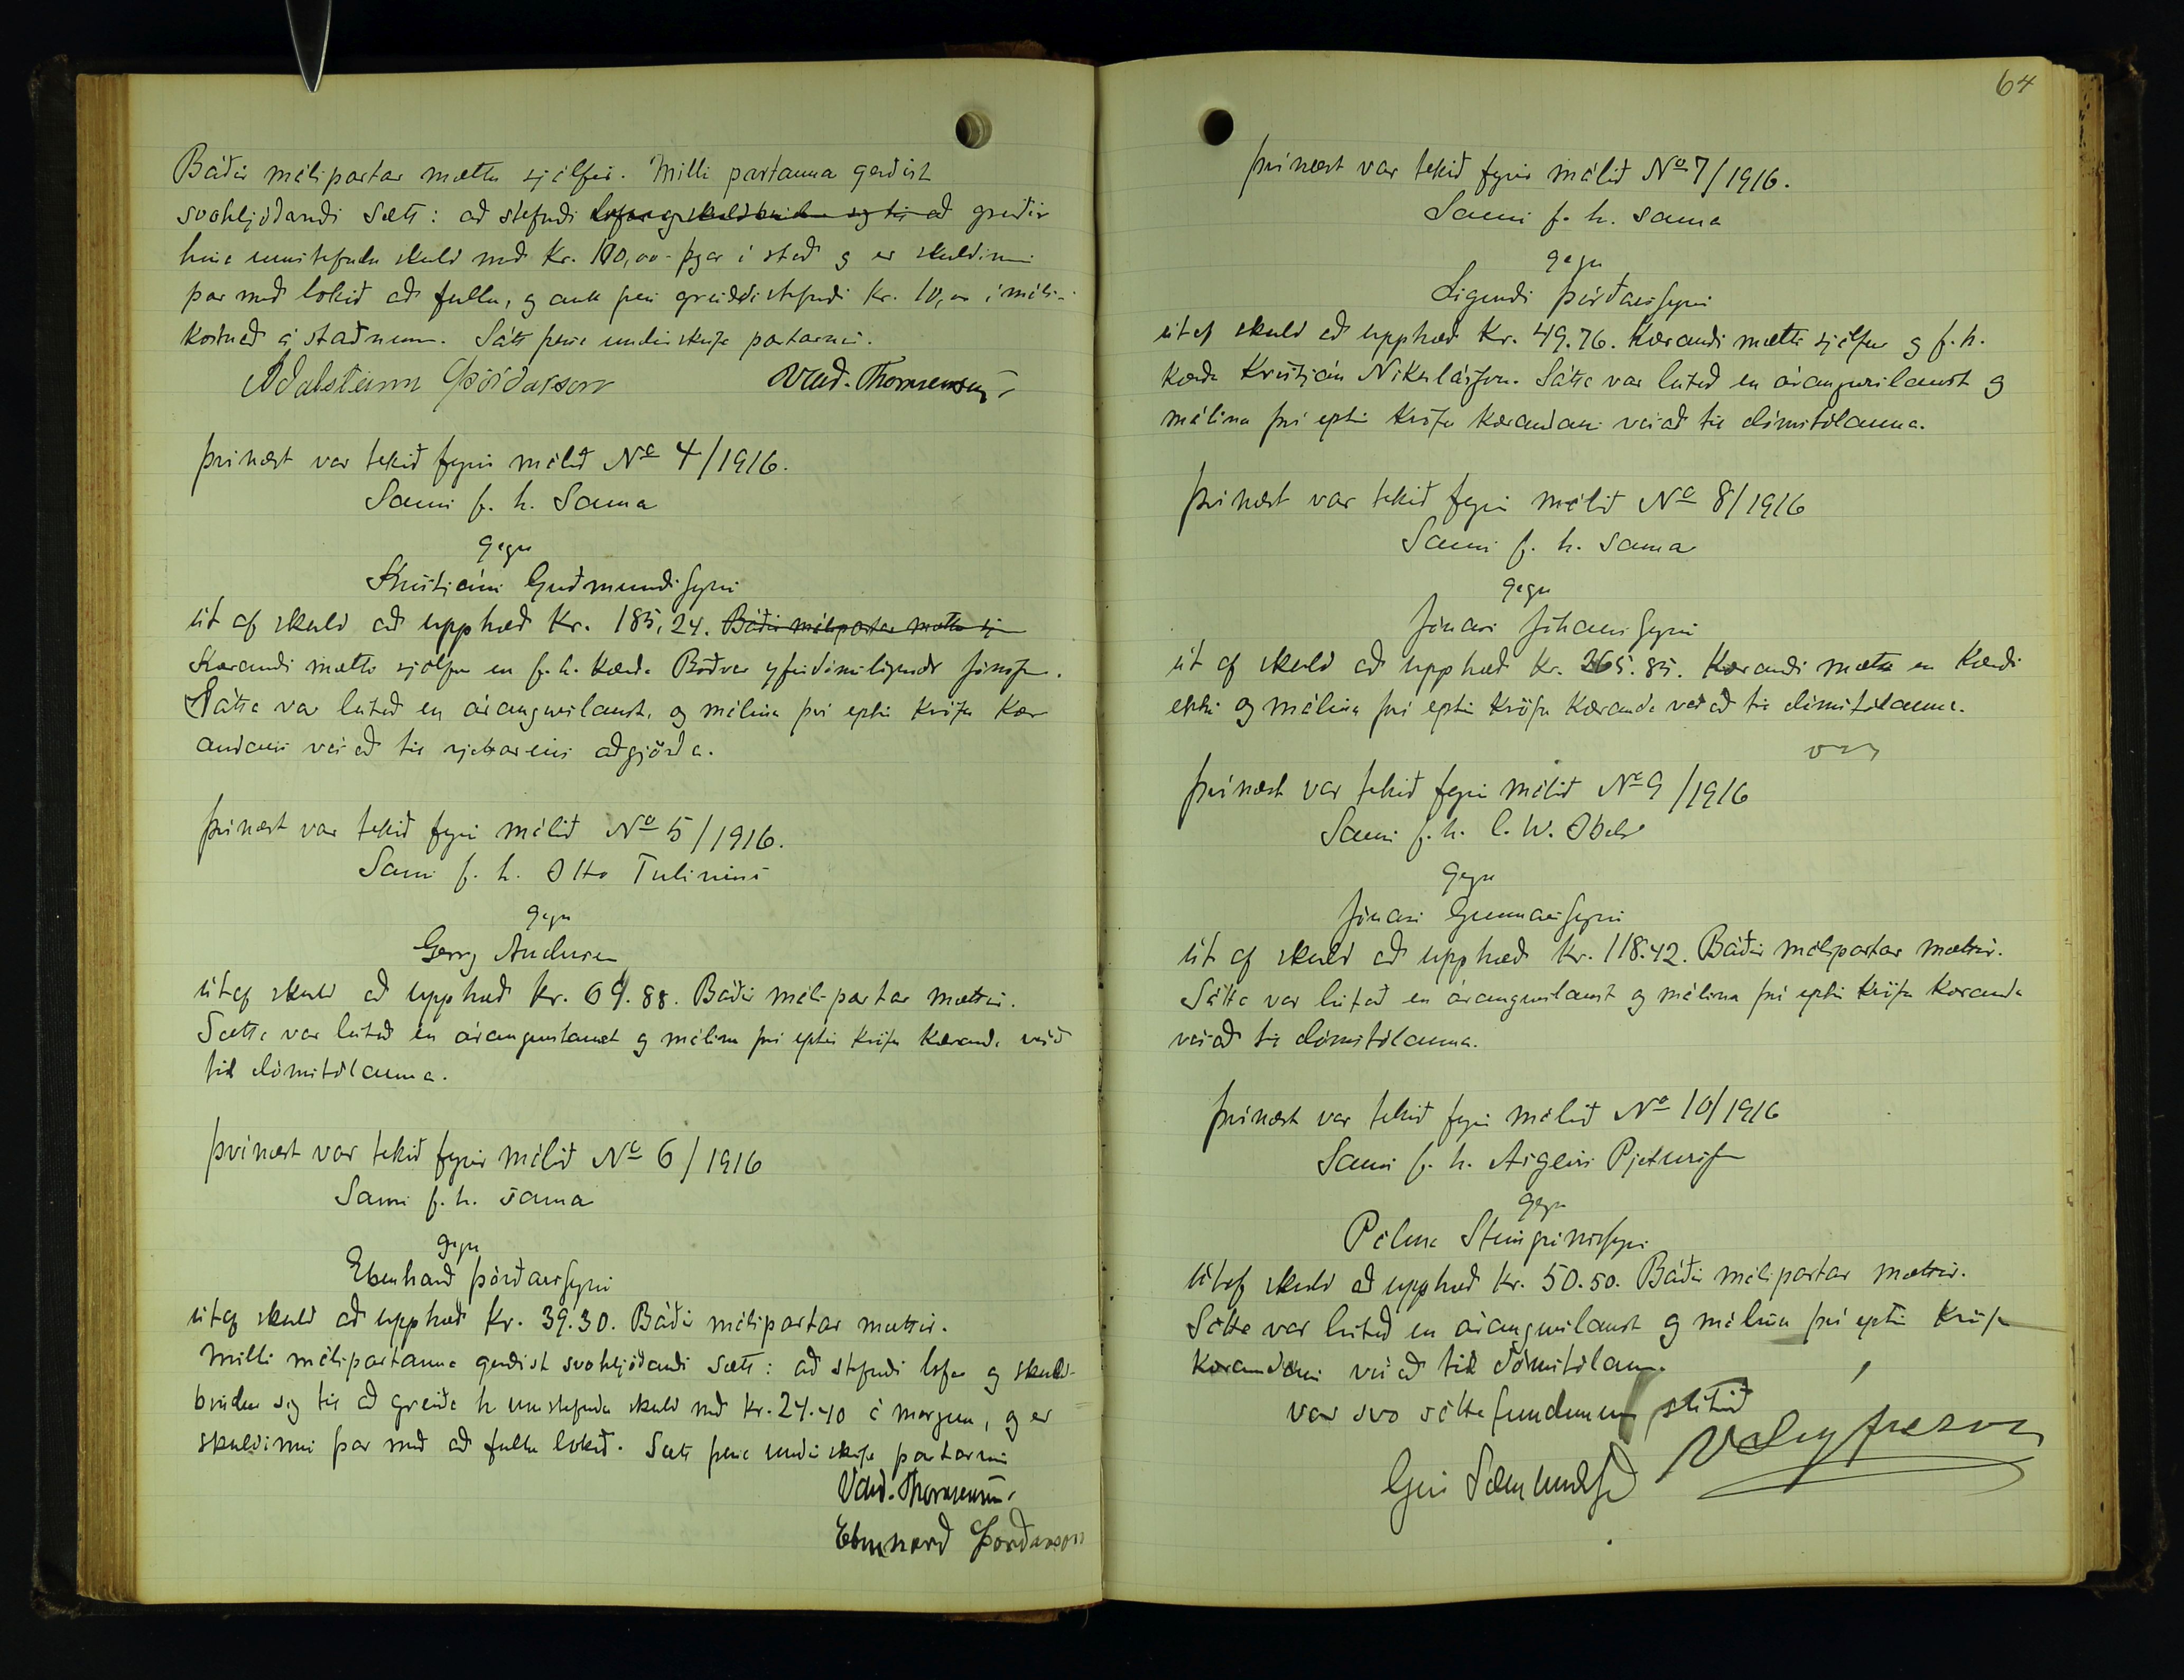 Báðir málspartar mættu sjálfir. Milli partanna gerðist
svohljóðandi sætt: að stefndi lofar og skuldbindur sig til að greiðir
hina umstefndu skuld með kr. 100,00 - þegar í stað og er skuldinni
þar með lokið að fullu, og auk þess greiddi stefndi kr. 10,00 í máls-
kostnað á staðnum. Sátt þessa undirskrifa partarnir.
Aðalsteinn Þórðarson Vald. Thorarensen
Því næst var tekið fyrir málið No 4/1916.
Sami f. h. Sama
gegn
Kristjáni Guðmundssyni
út af skuld að upphæð Kr. 185,24. Báðir málspartar mættu sj
Kærandi mætti sjálfur en f. h. kærða Böðvar yfirdómslögmaðr Jónsson.
Sátta var leitað en árangurslaust, og málinu því eptir kröfu kær
andans vísað til rjettarins aðgjörða.
Því næst var tekið fyrir málið No 5/1916.
Sami f. h. Otto Tulinius
gegn
Georg Andersen
út af skuld að upphæð kr. 69.88. Báðir málspartar mættir.
Sætta var leitað en árangurslaust og málinu því eptir kröfu kæranda vísað
til dómstólanna.
Því næst var tekið fyrir málið No 6/1916
Sami f. h. sama
gegn
Ebenharð Þórðarssyni
út af skuld að upphæð kr. 39.30. Báðir málspartar mættir.
Milli málspartanna gerðist svohljóðandi sætt: að stefndi lofar og skuld-
bindur sig til að greiða h umstefndu skuld með kr. 24.40 á morgun, og er
skuldinni þar með að fullu lokið. Sætt þessa undirskrifa partarnir
Vald. Thorarensen.
Ebenharð Þorðarson
64
Því næst var tekið fyrir málið No 7/1916.
Sami f. h. sama
gegn
Sigurði Þórðarssyni
út af skuld að upphæð Kr. 49.76. Kærandi mætti sjálfur og f. h.
kærða Kristján Nikulásson. Sátta var leitað en árangurslaust og
málinu því eptir kröfu kærandans vísað til dómstólanna.
Því næst var tekið fyrir málið No 8/1916
Sami f. h. sama
gegn
Jónasi Jóhannssyni
út af skuld að upphæð kr. 265.85. Kærandi mætti en kærði
ekki og málinu því eptir kröfu kæranda vísað til dómstólanna.
Því næst var tekið fyrir málið No 9/1916
Sami f. h. C. W. Obel
gegn
Jónasi Gunnarssyni
út af skuld að upphæð kr. 118.42. Báðir málspartar mættir.
Sátta var leitað en árangurslaust og málinu því eptir kröfu kæranda
vísað til dómstólanna.
Því næst var tekið fyrir málið No 10/1916
Sami f. h. Ásgeirs Pjeturssonar
gegn
Pálma Steingrímssyni
út af skuld að upphæð kr. 50.50. Báðir málspartar mættir.
Sátta var leitað en árangurslaust og málinu því eptir kröfu
kærandans vísað til dómstólanna.
Var svo sáttafundinum slitið
Geir Sæmundsson